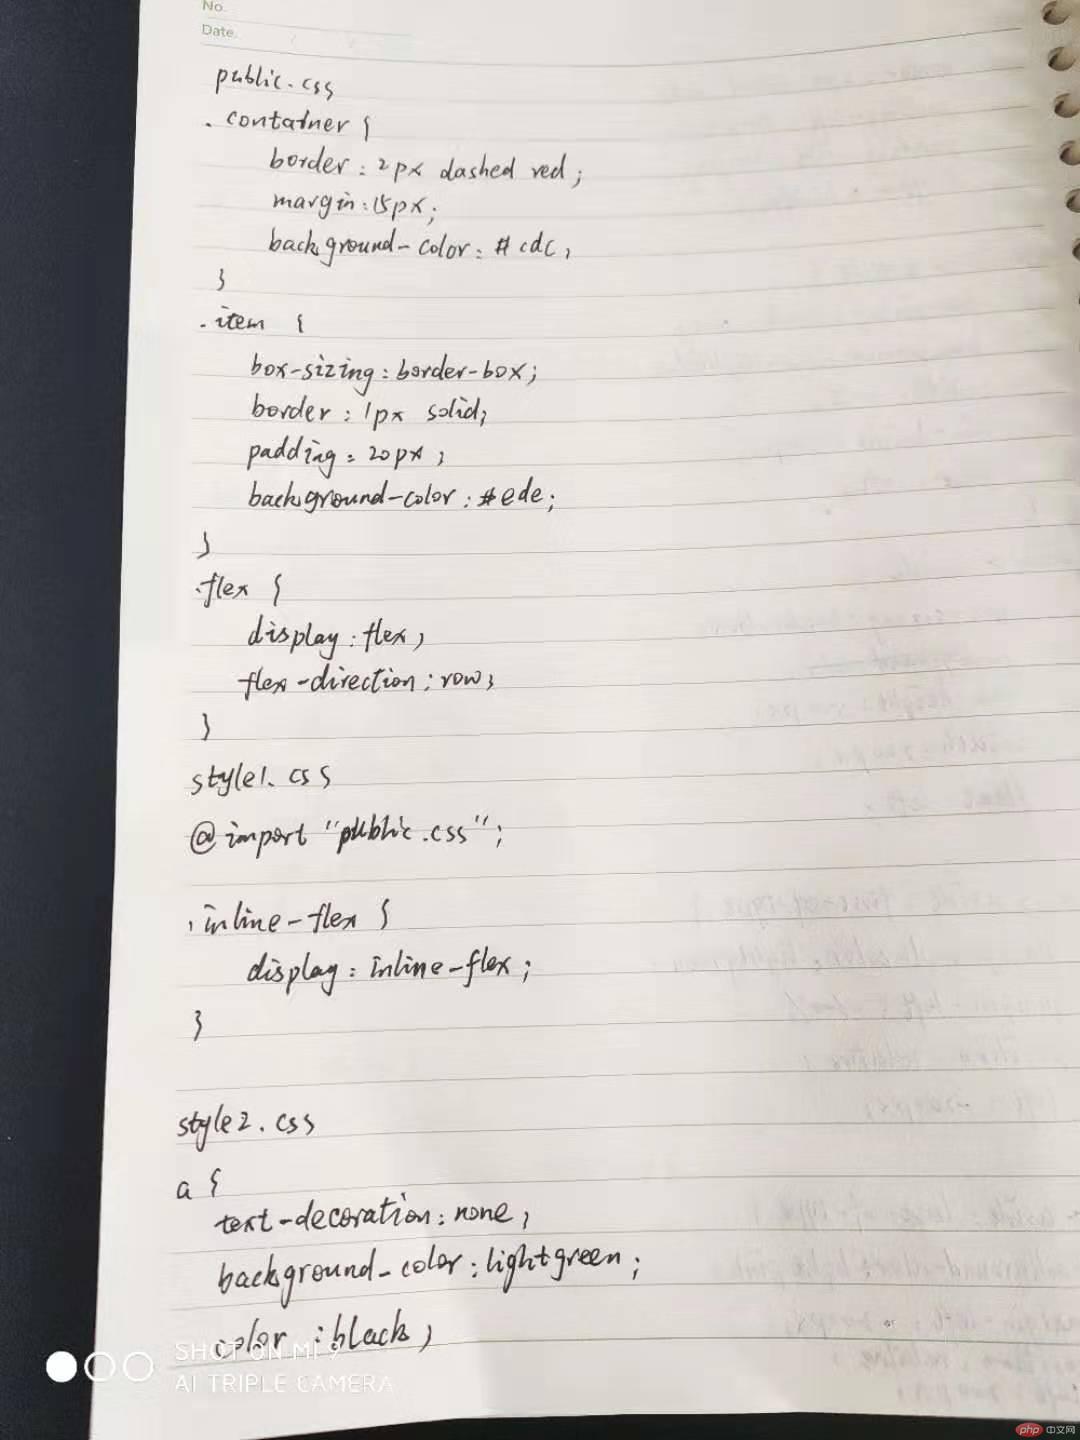 No.
Date.
public.css
.container {
border: 2px dashed red;
margin:15px;
background-color: #cdc;
}
.item {
box-sizing: border-box;
border: 1px solid;
padding: 20px;
background-color: #ede;
}
.flex {
display: flex;
flex-direction: row;
}
style1.css
@import "public.css";
.inline-flex {
display: inline-flex;
}
style2.css
a {
text-decoration: none;
background-color: lightgreen;
color: black;
SHOT ON MI 9
AI TRIPLE CAMERA
php 中文网